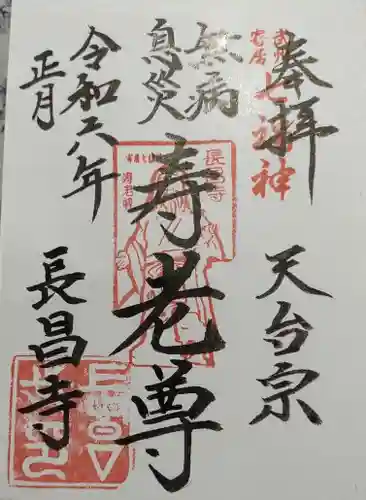 奉拝
武州
寄居
七福神
天台宗
無病
息災
寿老尊
長昌寺
令和六年
正月
長昌寺